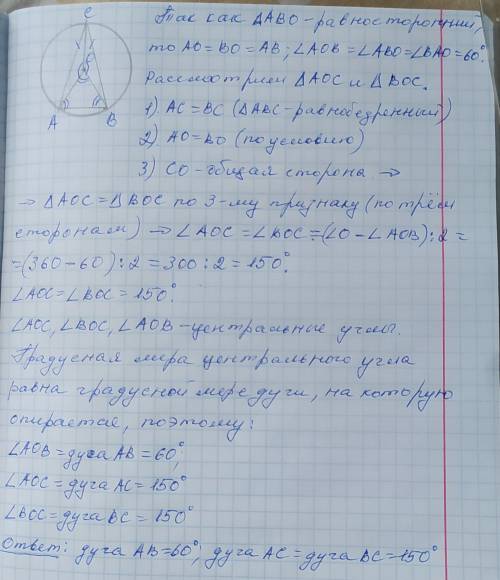 C
O
A
B
Так как ΔABO - равносторонний,
то AO=BO=AB; ∠AOB=∠ABO=∠BAO=60°.
Рассмотрим ΔAOC и ΔBOC.
1) AC=BC (ΔABC-равнобедренный)
2) AO=BO (по условию)
3) CO-общая сторона →
→ ΔAOC=ΔBOC по 3-му признаку (по трём
сторонам) → ∠AOC=∠BOC=(∠O-∠AOB):2=
=(360-60):2=300:2=150°.
∠AOC=∠BOC=150°.
∠AOC, ∠BOC, ∠AOB-центральные углы.
Градусная мера центрального угла
равна градусной мере дуги, на которую
опирается, поэтому:
∠AOB=дуга AB=60°;
∠AOC=дуга AC=150°
∠BOC=дуга BC=150°
Ответ: дуга AB=60°; дуга AC=дуга BC=150°